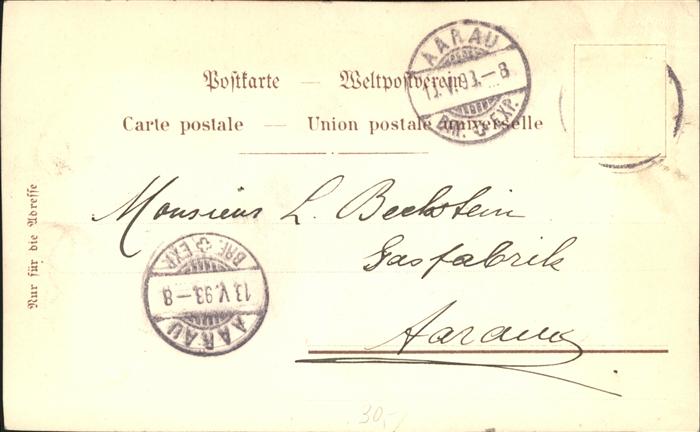 Postkarte — Weltpostverein
Carte postale — Union postale universelle
Nur für die Adresse
AARAU
13.V.93.–8
BRF. EXP.
Monsieur L. Beckstein
Gasfabrik
Aarau
BRF. EXP.
13.V.93.–8
AARAU
30,-